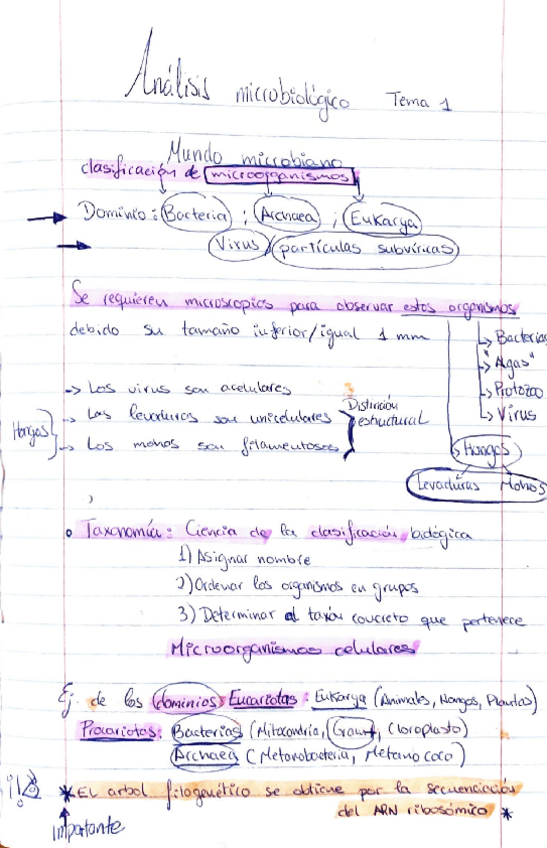 Análisis microbiológico Tema 1
Mundo microbiano
clasificación de microorganismos
Dominio: Bacteria ; Archaea ; Eukarya
Virus / partículas subvíricas
Se requieren microscopios para observar estos organismos
debido su tamaño inferior/igual 1 mm
Bacterias
"Agas"
Protozoo
Virus
Hongos
Levaduras Mohos
-> Los virus son acelulares
Hongos
-> Las levaduras son unicelulares
-> Los mohos son filamentosos
Distinción
estructural
Taxonomía: Ciencia de la clasificación biológica
1) Asignar nombre
2) Ordenar los organismos en grupos
3) Determinar el taxón concreto que pertenece
Microorganismos celulares
Ej. de los dominios Eucariotas: Eukarya (Animales, Hongos, Plantas)
Procariotas: Bacterias (Mitocondria, Gram+, Cloroplasto)
Archaea (Metanobacteria, Metanococo)
¡!
* El arbol filogenético se obtiene por la secuenciación
del ARN ribosómico *
importante